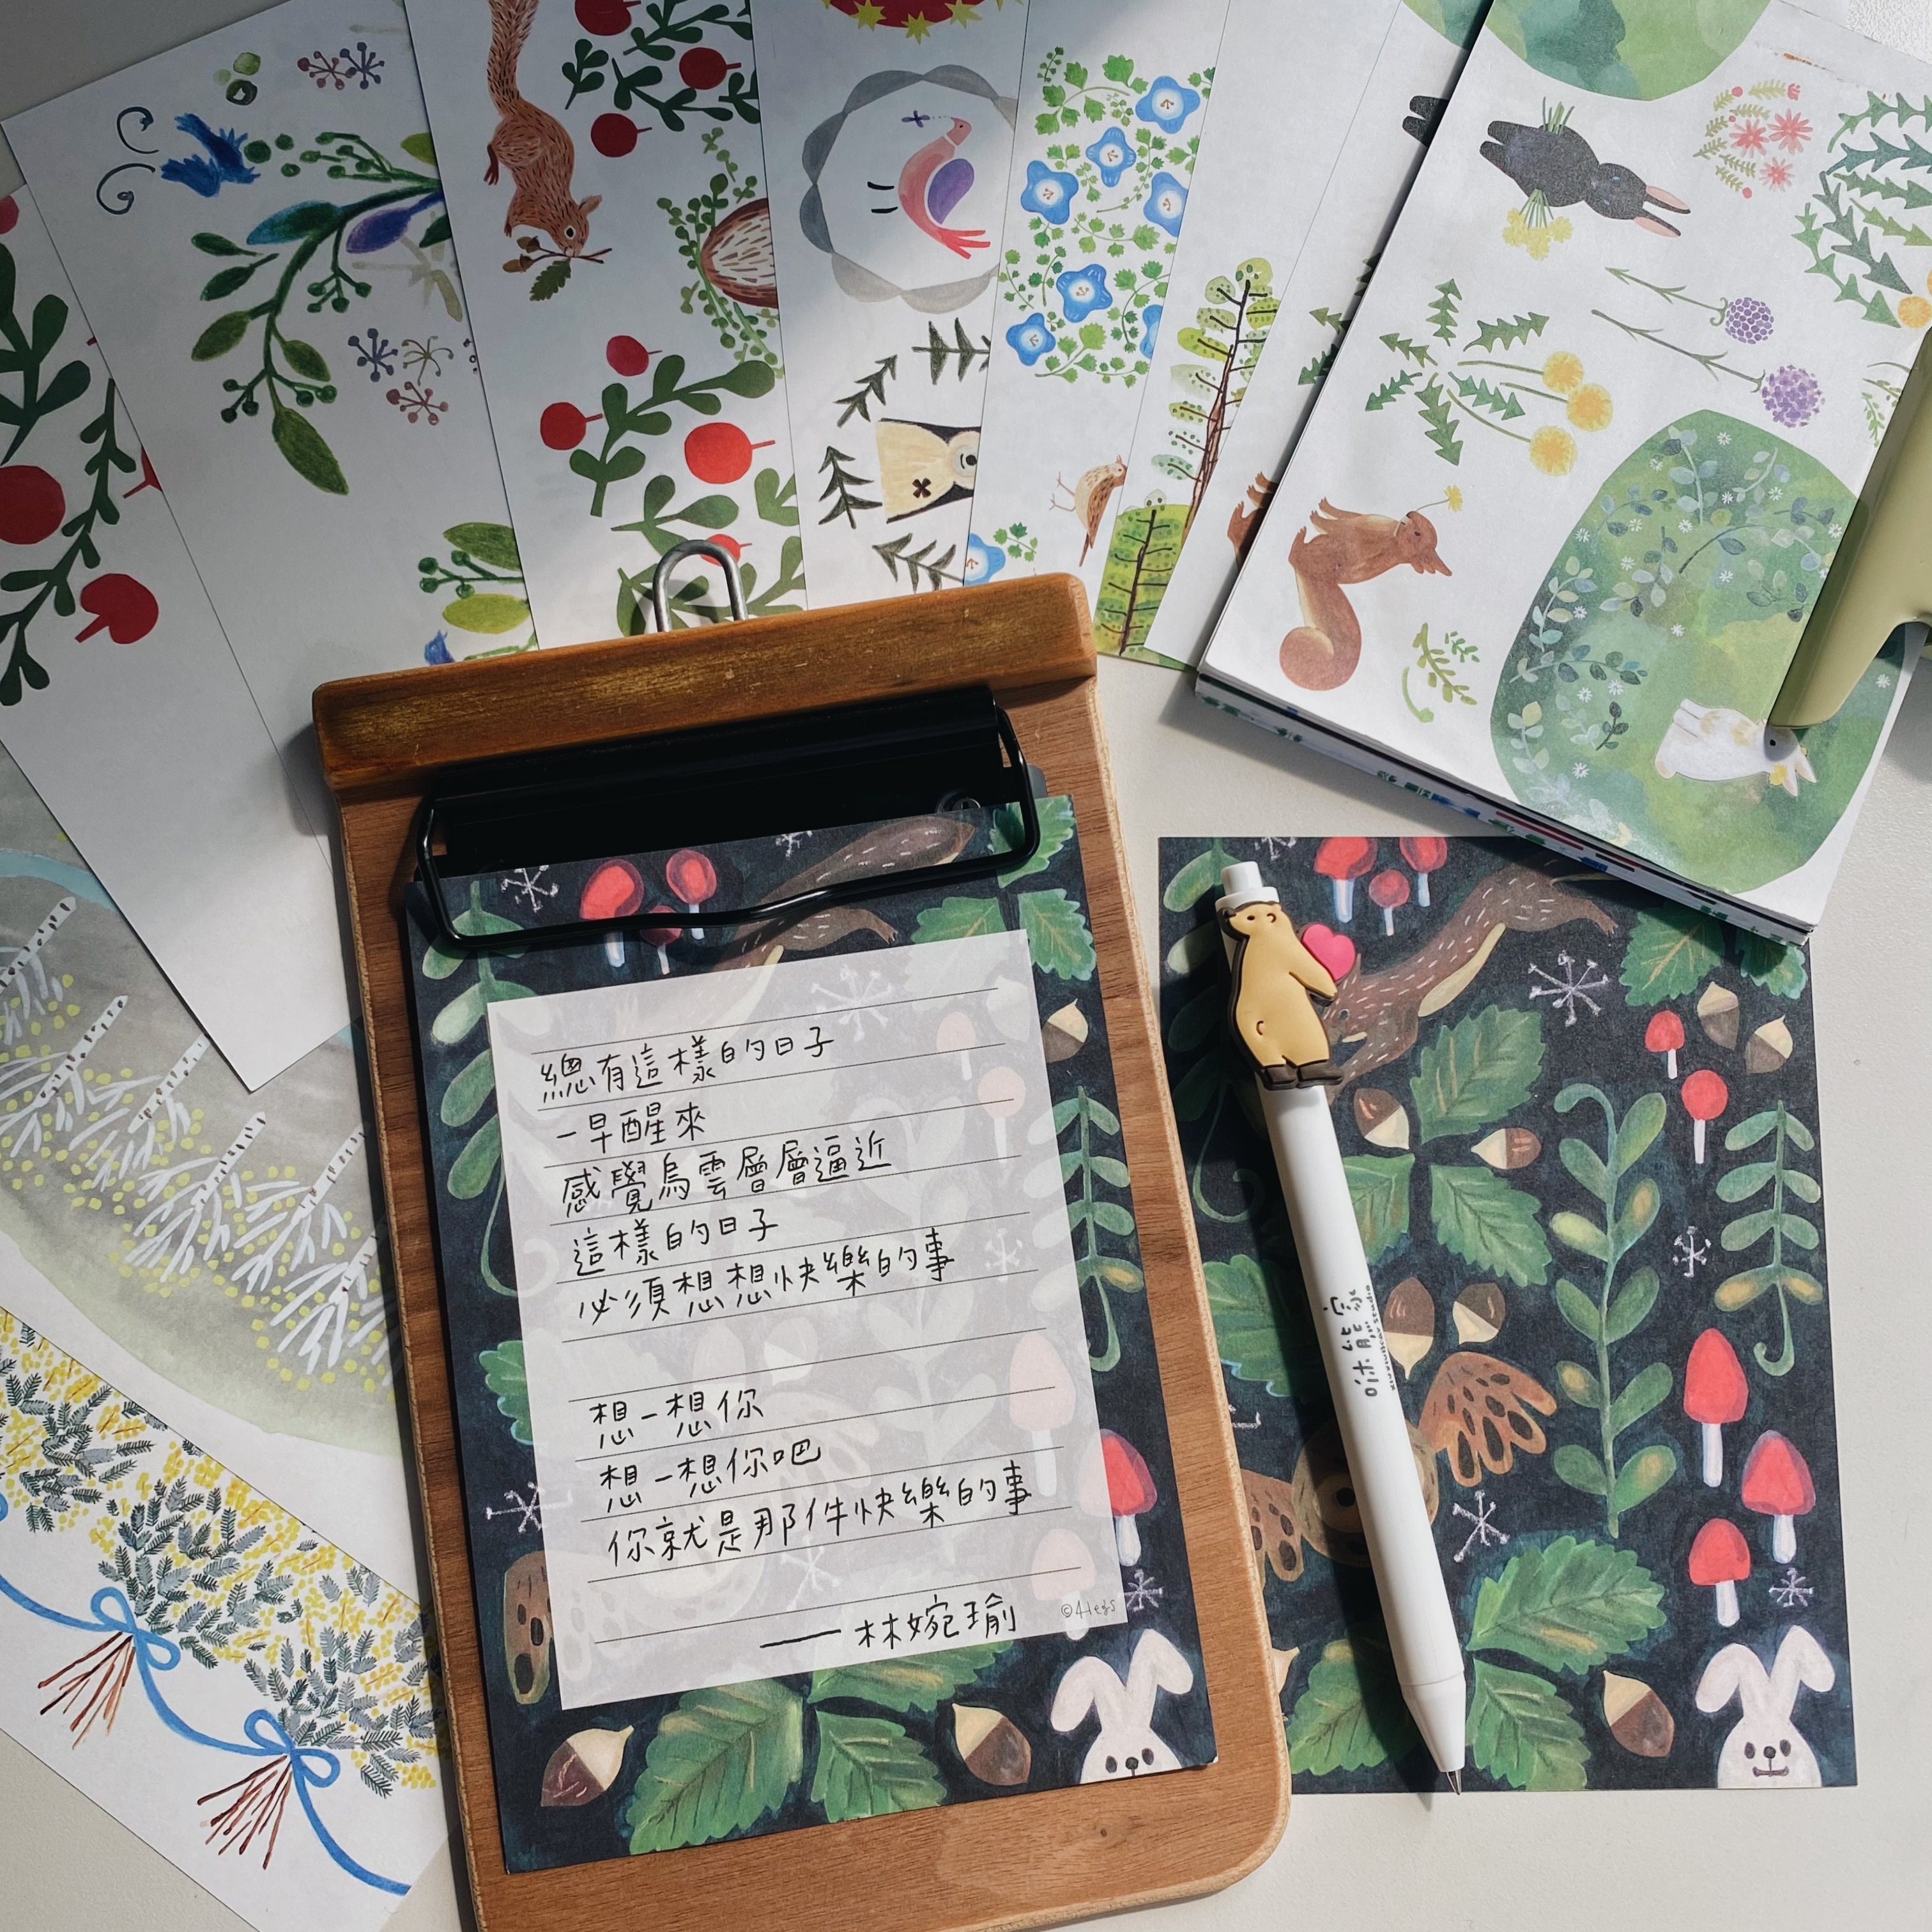 總有這樣的日子
一早醒來
感覺烏雲層層逼近
這樣的日子
必須想想快樂的事
想一想你
想一想你吧
你就是那件快樂的事
——林婉瑜
©4legs
咪熊家